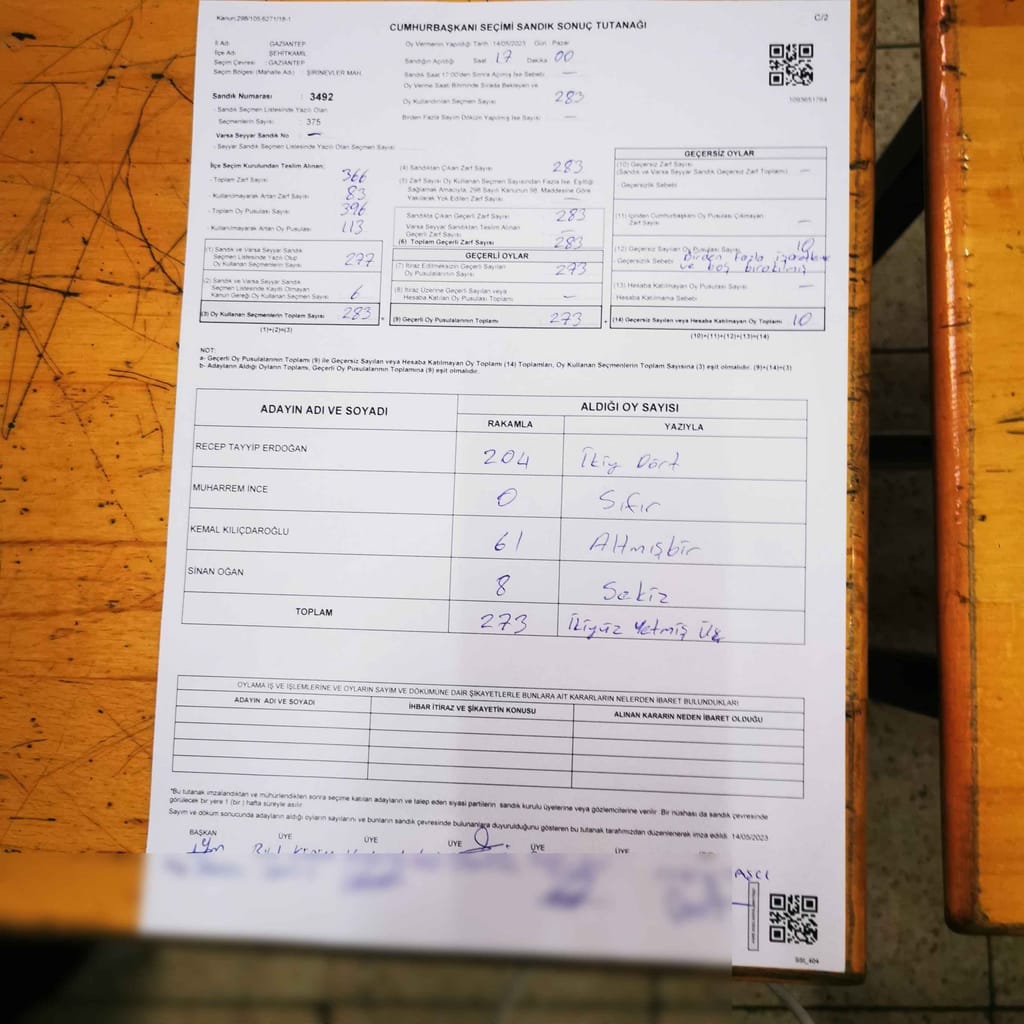 Kanun:298/105,6271/18-1
C/2
CUMHURBAŞKANI SEÇİMİ SANDIK SONUÇ TUTANAĞI
İl Adı : GAZİANTEP
İlçe Adı : ŞEHİTKAMİL
Seçim Çevresi : GAZİANTEP
Seçim Bölgesi (Mahalle Adı) : ŞİRİNEVLER MAH.
Oy Vermenin Yapıldığı Tarih :14/05/2023 Gün : Pazar
Sandığın Açıldığı Saat 17 Dakika 00
Sandık Saat 17:00'den Sonra Açılmış İse Sebebi —
Oy Verme Saati Bitiminde Sırada Bekleyen ve
Oy Kullandırılan Seçmen Sayısı 283
Birden Fazla Sayım Döküm Yapılmış İse Sayısı —
Sandık Numarası : 3492
- Sandık Seçmen Listesinde Yazılı Olan
Seçmenlerin Sayısı : 375
Varsa Seyyar Sandık No : —
- Seyyar Sandık Seçmen Listesinde Yazılı Olan Seçmen Sayısı
İlçe Seçim Kurulundan Teslim Alınan:
- Toplam Zarf Sayısı 366
- Kullanılmayarak Artan Zarf Sayısı 83
- Toplam Oy Pusulası Sayısı 396
- Kullanılmayarak Artan Oy Pusulası 113
(1) Sandık ve Varsa Seyyar Sandık
Seçmen Listesinde Yazılı Olup
Oy Kullanan Seçmenlerin Sayısı 277
(2) Sandık ve Varsa Seyyar Sandık
Seçmen Listesinde Kayıtlı Olmayan
Kanun Gereği Oy Kullanan Seçmen Sayısı 6
(3) Oy Kullanan Seçmenlerin Toplam Sayısı 283
(1)+(2)=(3)
(4) Sandıktan Çıkan Zarf Sayısı 283
(5) Zarf Sayısı Oy Kullanan Seçmen Sayısından Fazla İse, Eşitliği
Sağlamak Amacıyla, 298 Sayılı Kanunun 98. Maddesine Göre
Yakılarak Yok Edilen Zarf Sayısı —
Sandıkta Çıkan Geçerli Zarf Sayısı 283
Varsa Seyyar Sandıktan Teslim Alınan
Geçerli Zarf Sayısı —
(6) Toplam Geçerli Zarf Sayısı 283
GEÇERLİ OYLAR
(7) İtiraz Edilmeksizin Geçerli Sayılan
Oy Pusulalarının Sayısı 273
(8) İtiraz Üzerine Geçerli Sayılan veya
Hesaba Katılan Oy Pusulası Toplamı —
(9) Geçerli Oy Pusulalarının Toplamı 273
GEÇERSİZ OYLAR
(10) Geçersiz Zarf Sayısı
(Sandık ve Varsa Seyyar Sandık Geçersiz Zarf Toplamı) —
- Geçersizlik Sebebi
(11) İçinden Cumhurbaşkanı Oy Pusulası Çıkmayan
Zarf Sayısı —
(12) Geçersiz Sayılan Oy Pusulası Sayısı 10
- Geçersizlik Sebebi Birden fazla
ve boş bırakılmış
(13) Hesaba Katılmayan Oy Pusulası Sayısı —
Hesaba Katılmama Sebebi
(14) Geçersiz Sayılan veya Hesaba Katılmayan Oy Toplamı 10
(10)+(11)+(12)+(13)=(14)
NOT:
a- Geçerli Oy Pusulalarının Toplamı (9) ile Geçersiz Sayılan veya Hesaba Katılmayan Oy Toplamı (14) Toplamları, Oy Kullanan Seçmenlerin Toplam Sayısına (3) eşit olmalıdır. (9)+(14)=(3)
b- Adayların Aldığı Oyların Toplamı, Geçerli Oy Pusulalarının Toplamına (9) eşit olmalıdır.
ADAYIN ADI VE SOYADI ALDIĞI OY SAYISI
RAKAMLA YAZIYLA
RECEP TAYYİP ERDOĞAN 204 İkiy Dört
MUHARREM İNCE 0 Sıfır
KEMAL KILIÇDAROĞLU 61 Altmışbir
SİNAN OĞAN 8 Sekiz
TOPLAM 273 İkiyüz Yetmiş Üç
OYLAMA İŞ VE İŞLEMLERİNE VE OYLARIN SAYIM VE DÖKÜMÜNE DAİR ŞİKAYETLERLE BUNLARA AİT KARARLARIN NELERDEN İBARET BULUNDUKLARI
ADAYIN ADI VE SOYADI İHBAR İTİRAZ VE ŞİKAYETİN KONUSU ALINAN KARARIN NEDEN İBARET OLDUĞU
*Bu tutanak imzalandıktan ve mühürlendikten sonra seçime katılan adayların ve talep eden siyasi partilerin sandık kurulu üyelerine veya gözlemcilerine verilir. Bir nüshası da sandık çevresinde
görülecek bir yere 1 (bir) hafta süreyle asılır.
Sayım ve döküm sonucunda adayların aldığı oyların sayılarını ve bunların sandık çevresinde bulunanlara duyurulduğunu gösteren bu tutanak tarafımızdan düzenlenerek imza edildi. 14/05/2023
BAŞKAN ÜYE ÜYE ÜYE ÜYE ÜYE